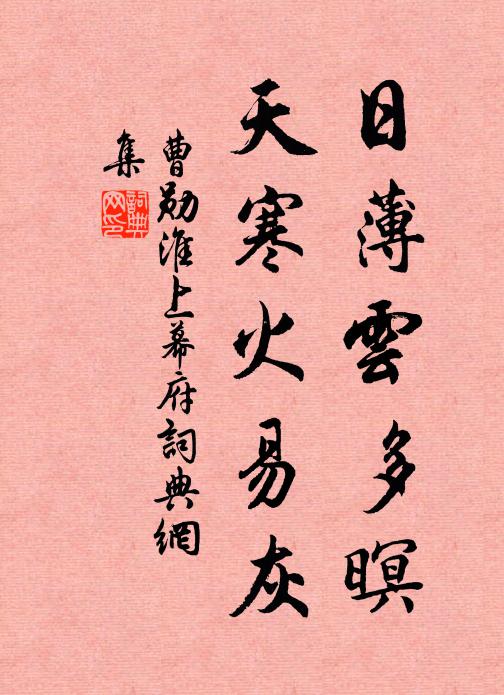 日薄雲多暝
天寒火易灰
曹勛淮上幕府詞典網
集
詞典
网印